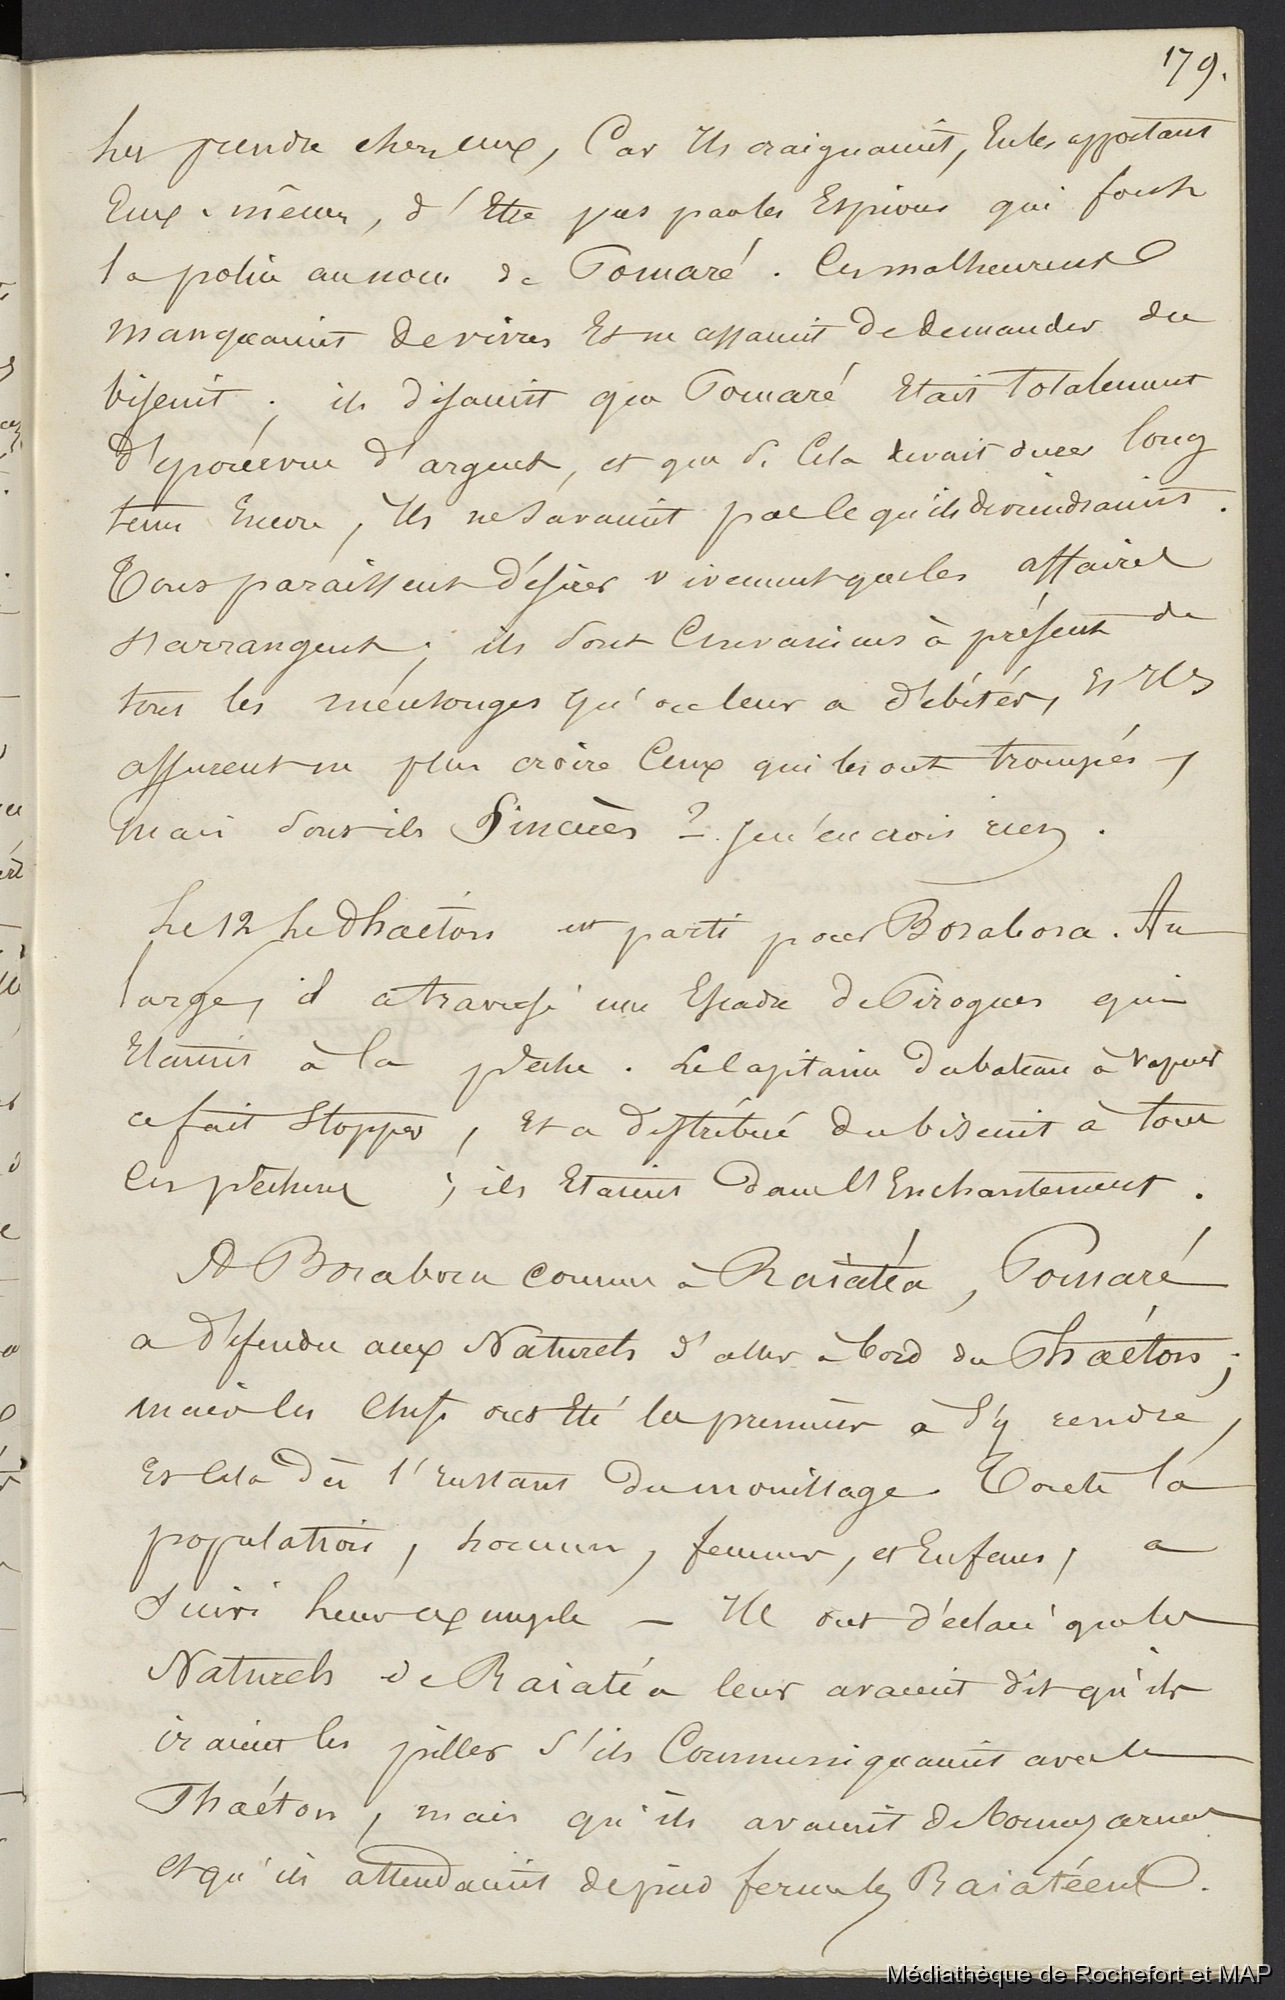 179.
les prendre chez eux, Car Ils craignaient, En les apportant
Eux-mêmes, d'Etre pris par les Espions qui font
la police au nom de Pomaré. Ces malheureux
manquaient de vivres Et ne cessaient De demander du
biscuit ; ils disaient que Pomaré Etait totalement
d'épourvue d'argent, et que si Cela devait durer long
tems Encore, Ils ne savaient pas ce qu'ils deviendraient.
Tous paraissent désirer vivement que les affaires
s'arrangent ; ils sont Convaincus à présent de
tous les ménsonges qu'on leur a débités, Et Ils
assurent ne plus croire Ceux qui les ont trompés,
mais sont-ils Sincères ? Je n'en crois rien.
Le 12 Le Phaéton est parti pour Borabora. Au
large, il a traversé une Escadre de Pirogues qui
Etaient à la pêche. Le Capitaine du bateau à vapeur
a fait Stopper, Et a distribué du biscuit à tous
Ces pêcheurs ; ils Etaient dans l'Enchantement.
A Borabora comme à Raiatéa, Pomaré
a défendu aux Naturels d'aller à bord du Phaéton ;
mais les Chefs ont Eté les premiers à s'y rendre,
Et Cela dès l'Instant du mouillage. Toute la
population, hommes, femmes, et Enfans, a
Suivi leur exemple — Ils ont déclaré que les
Naturels de Raiatéa leur avaient dit qu'ils
iraient les piller s'ils Communiquaient avec le
Phaéton, mais qu'ils avaient de bonnes armes
et qu'ils attendaient de pied ferme les Raiatéens.
Médiathèque de Rochefort et MAP